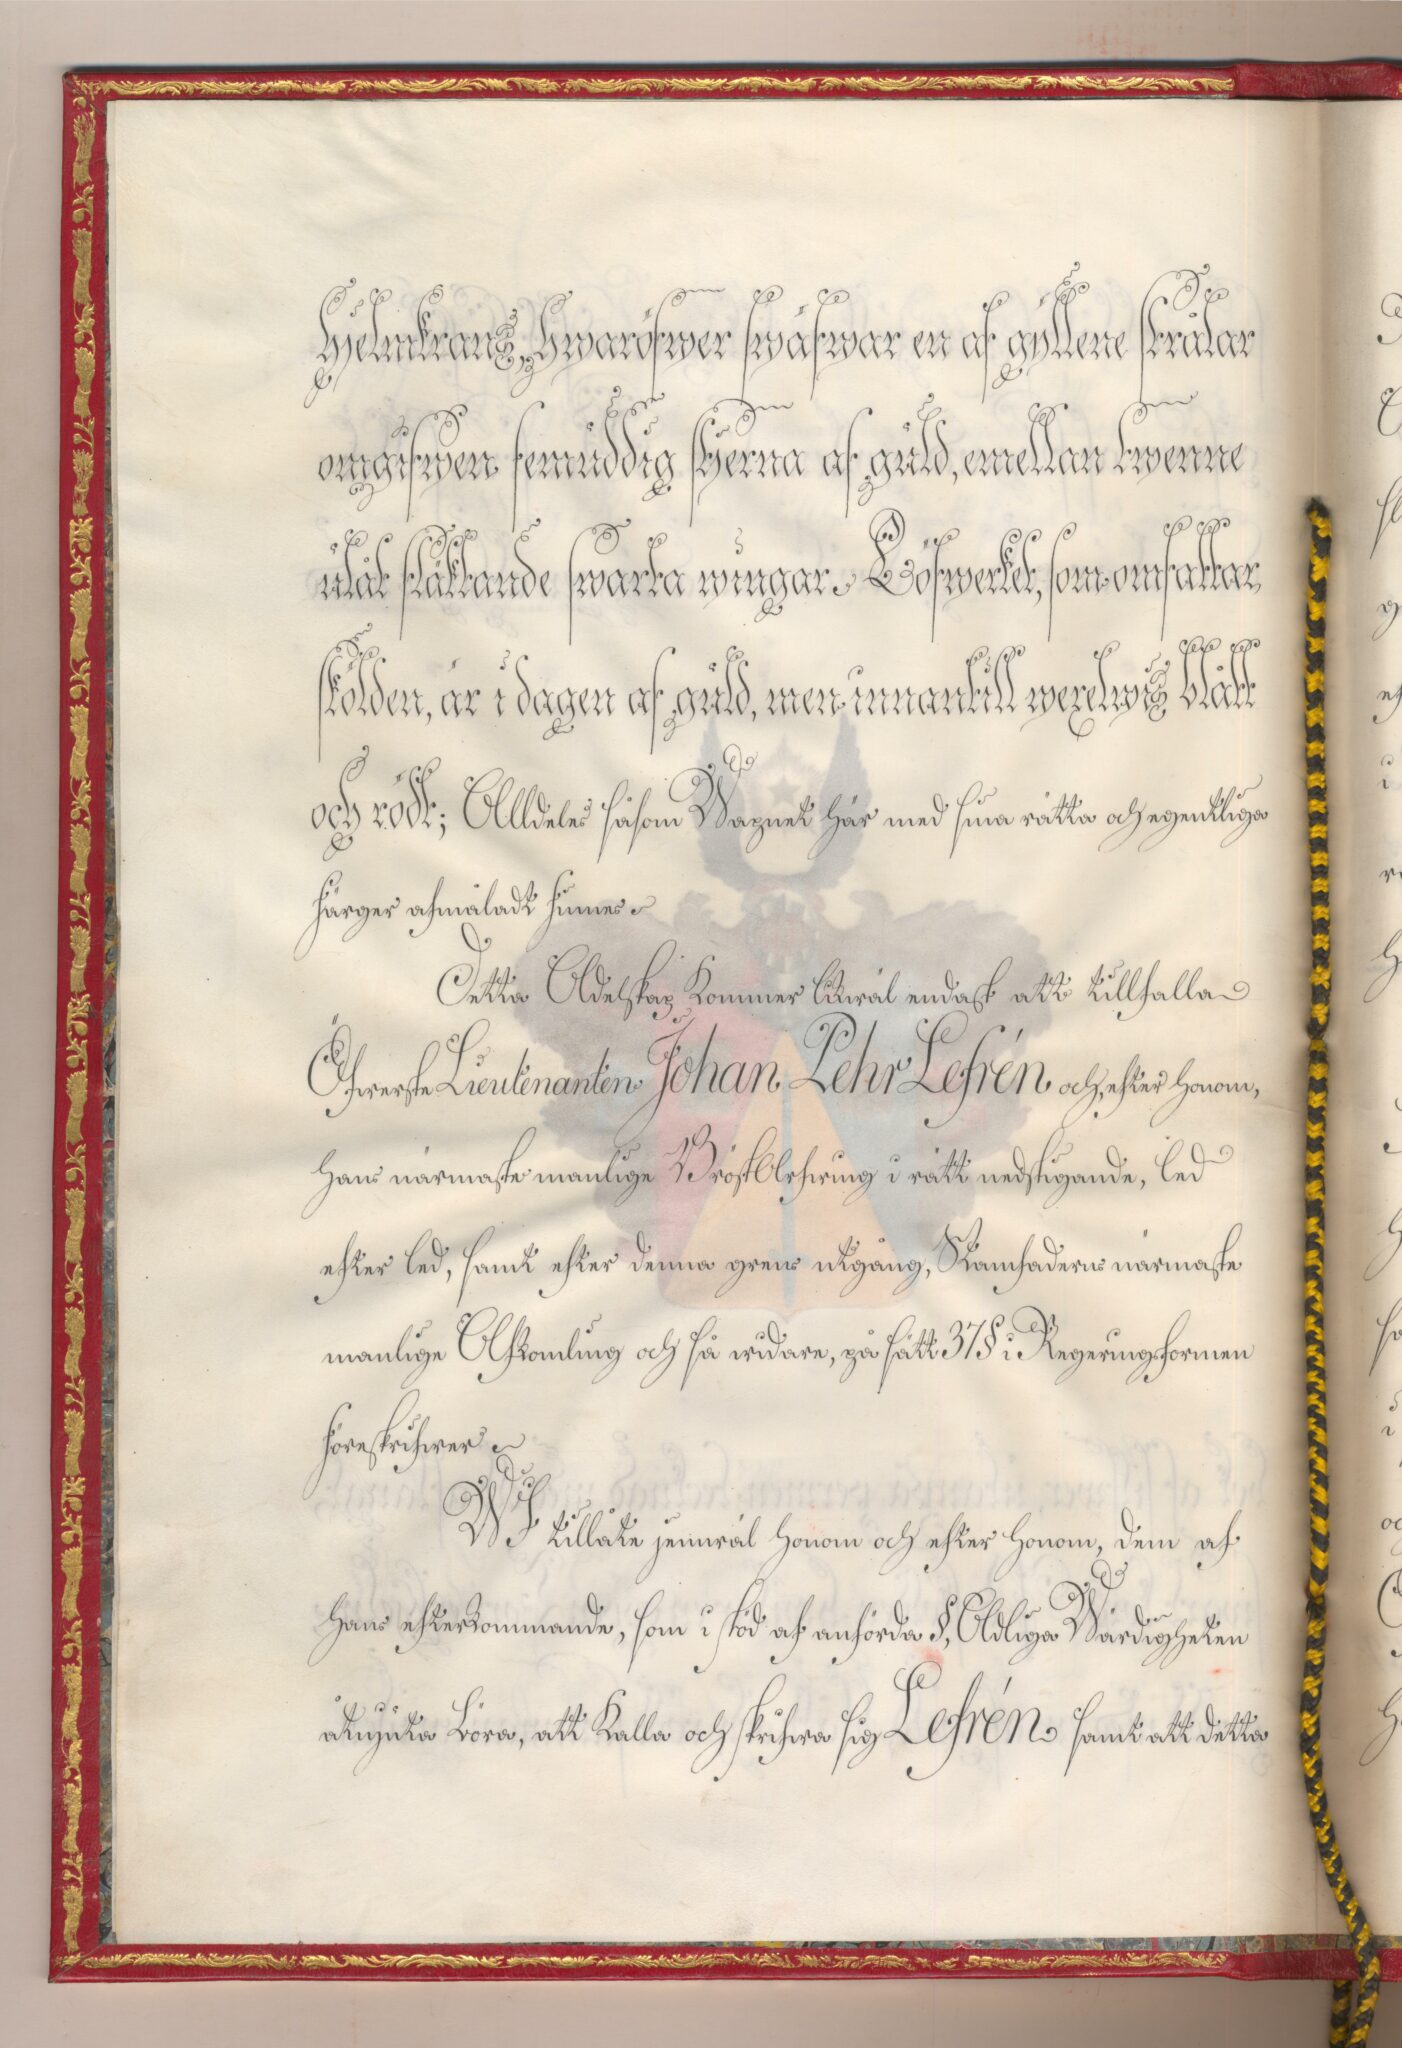 hjelmkrantz, hwaröfwer swäfwar en af gyllene strålar
omgifwen femuddig stjerna af guld, emellan twenne
utåt fläktande swarta wingar. Löfwerket, som omfattar
skölden, är i dagen af guld, men innantill wexelwis blått
och rödt; Alldeles såsom Wapnet här med sina rätta och egentliga
färger afmåladt finnes.
Detta Adelskap kommer likwäl endast att tillfalla
Öfwerste Lieutenanten Johan Pehr Lefrén och, efter honom,
hans närmaste manlige Bröst Arfwing i rätt nedstigande, led
efter led, samt efter denna grens utgång, Stamfaderns närmaste
manlige Afkomling och så widare, på sätt 37 § i Regeringsformen
föreskrifwer.
Wi tillåte jemwäl honom och efter honom, dem af
hans efterkommande, som i stöd af anförda §, Adliga Wärdigheten
åtnjuta böra, att kalla och skrifwa sig Lefrén samt att detta